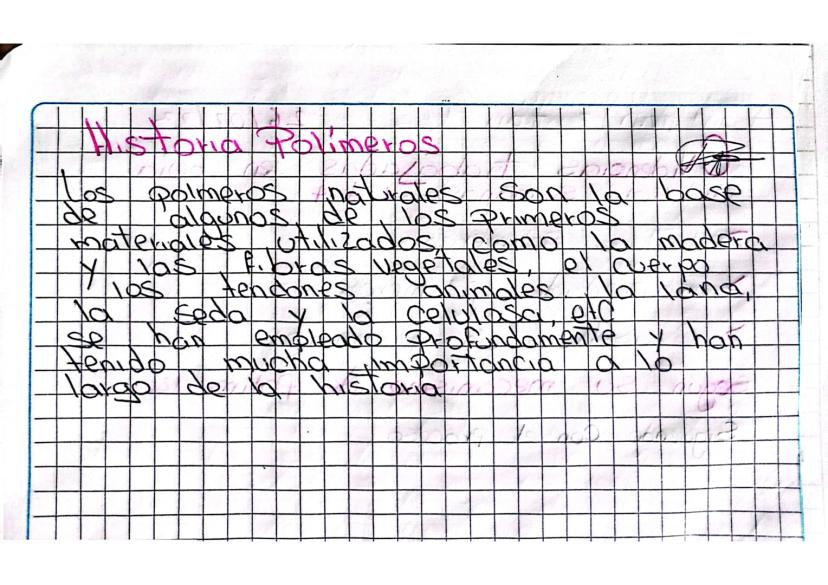 Historia Polímeros
Los polmeros naturales son la base
de algunos de los primeros
materiales utilizados, como la madera
y las fibras vegetales, el cuerpo
y los tendones animales la lana,
la seda y la celulasa, etc
se han empleado profundamente y han
tenido mucha importancia a lo
largo de la historia